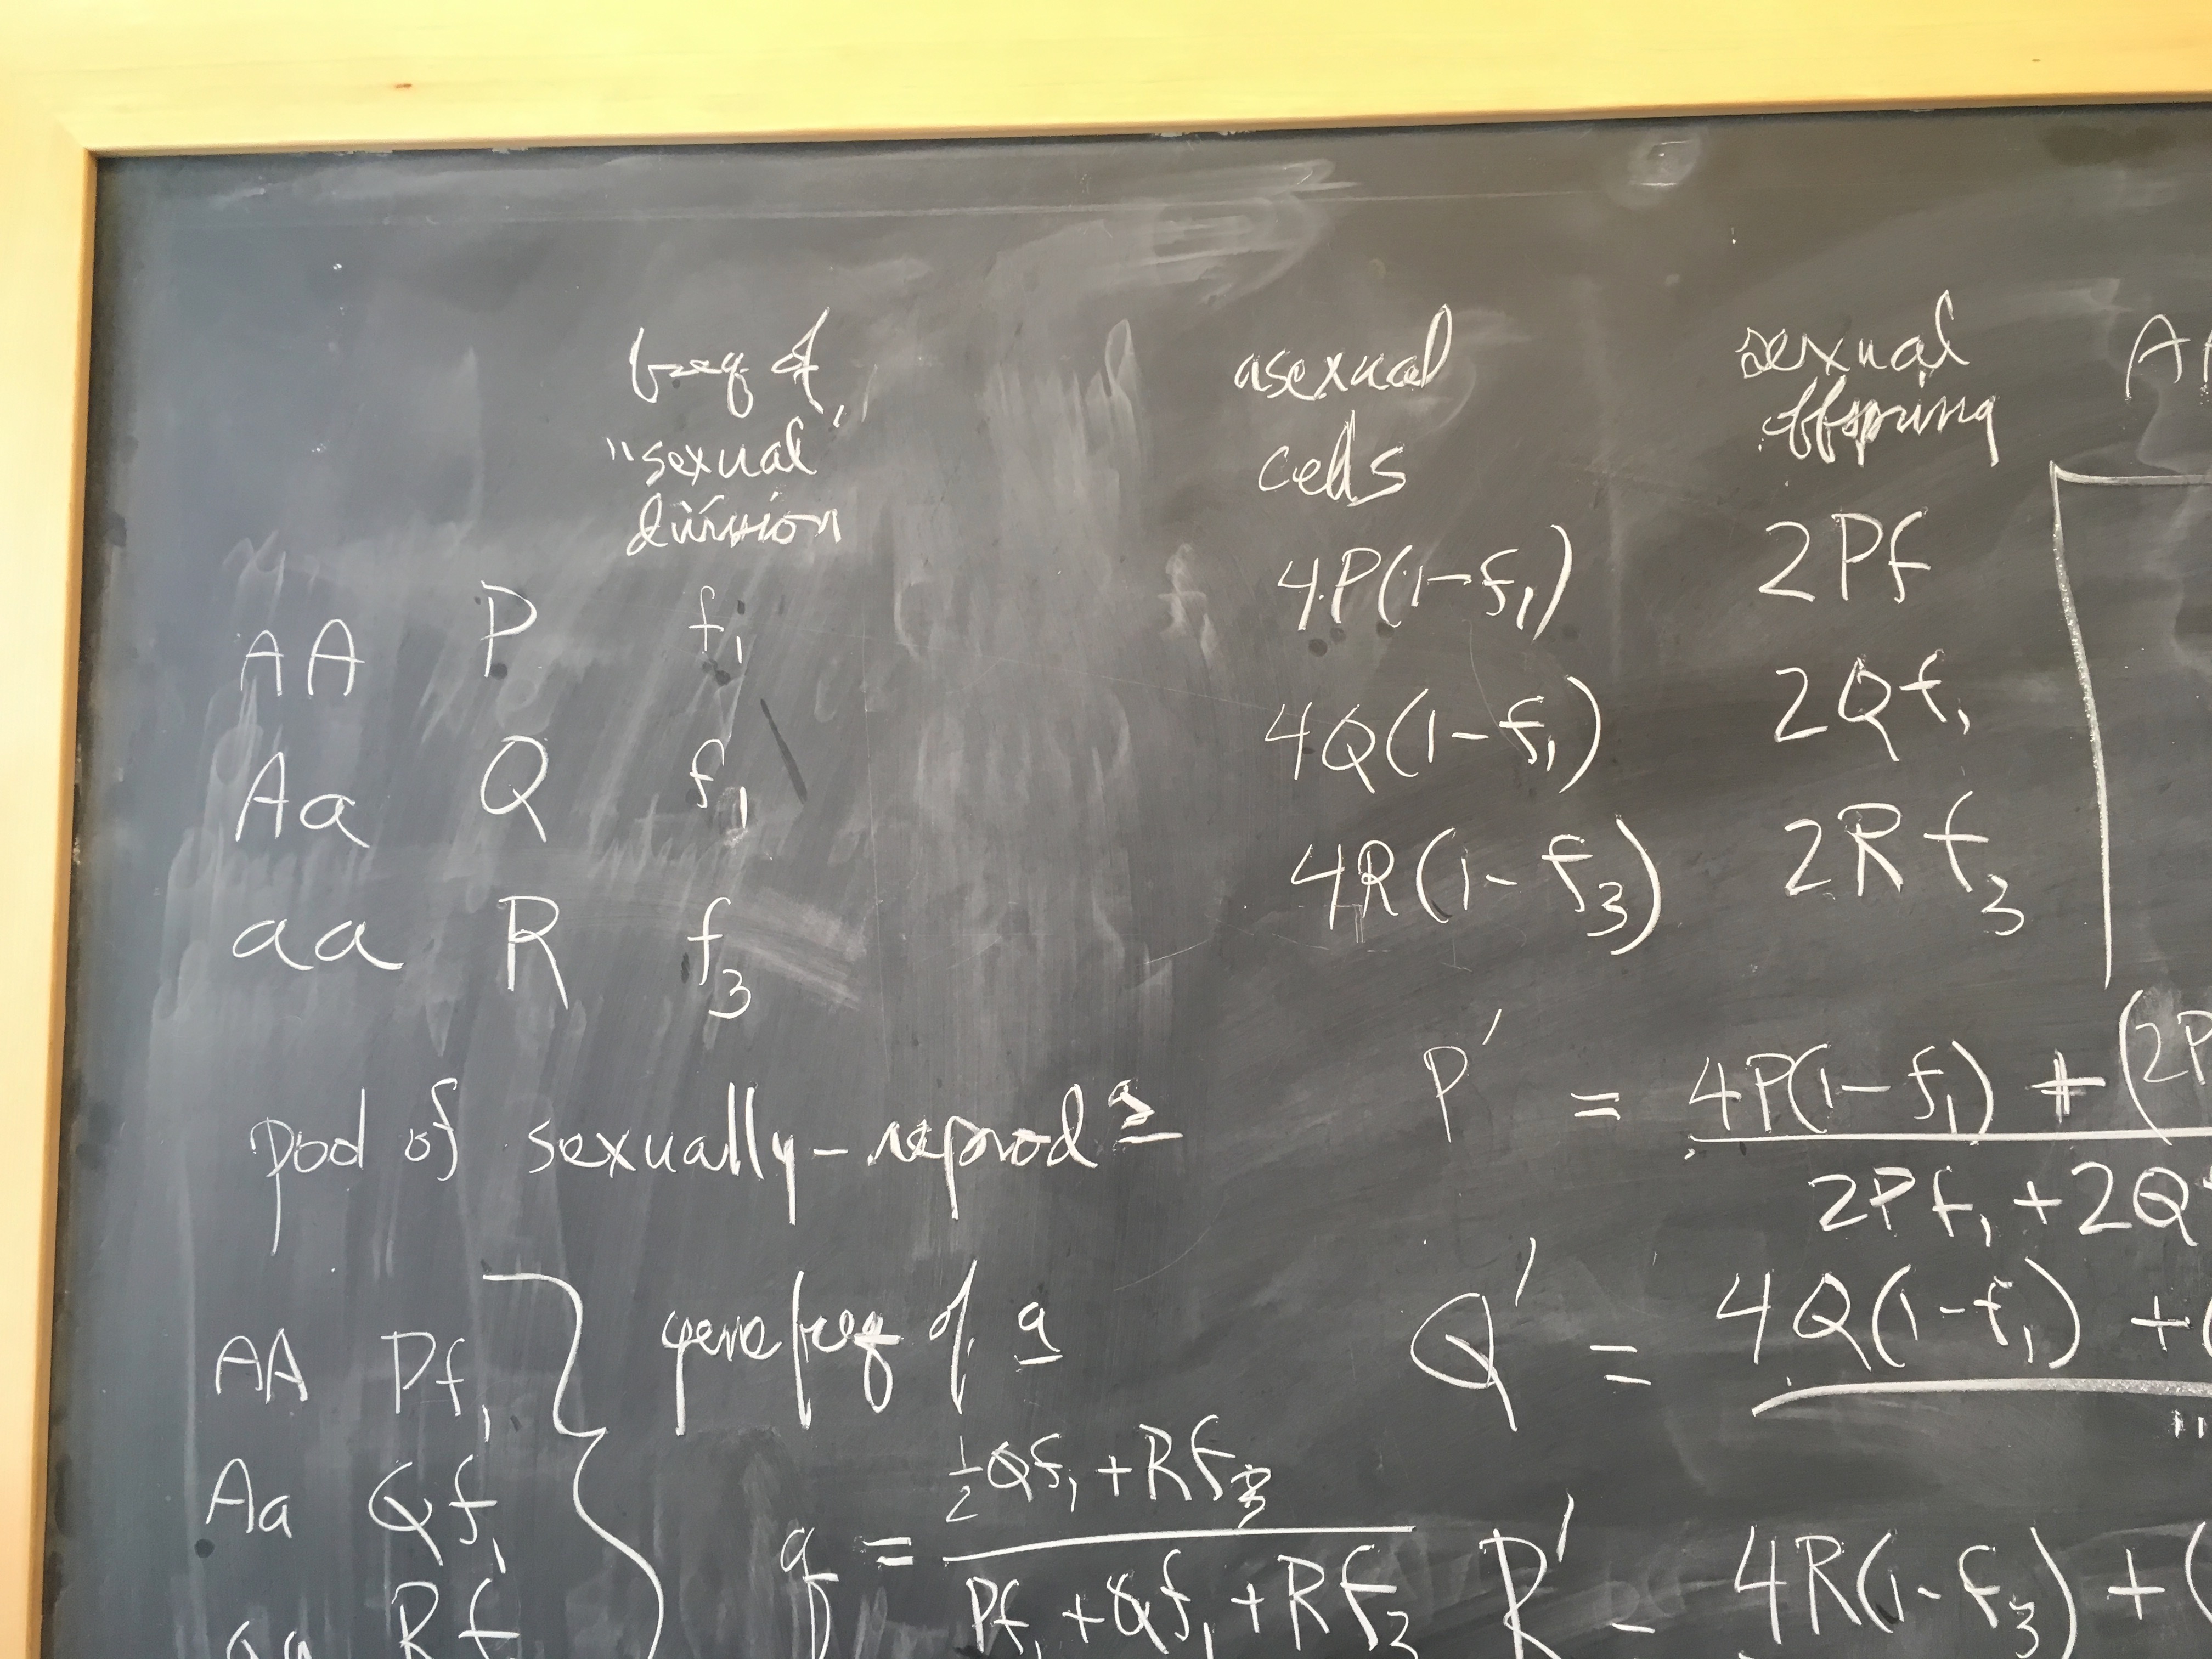 freq of
"sexual"
division
asexual
cells
sexual
offspring
A
AA P f₁ 4P(1-f₁) 2Pf
Aa Q f₁ 4Q(1-f₁) 2Qf₁
aa R f₃ 4R(1-f₃) 2Rf₃
pool of sexually-reprod g
P' = 4P(1-f₁) + (2P
2Pf₁ + 2Q
AA Pf₁
gene freq of a
Q' = 4Q(1-f₁) + (
"
Aa Qf₁
q = ½Qf₁ + Rf₃
Pf₁ + Qf₁ + Rf₃
aa Rf
R' = 4R(1-f₃) + (